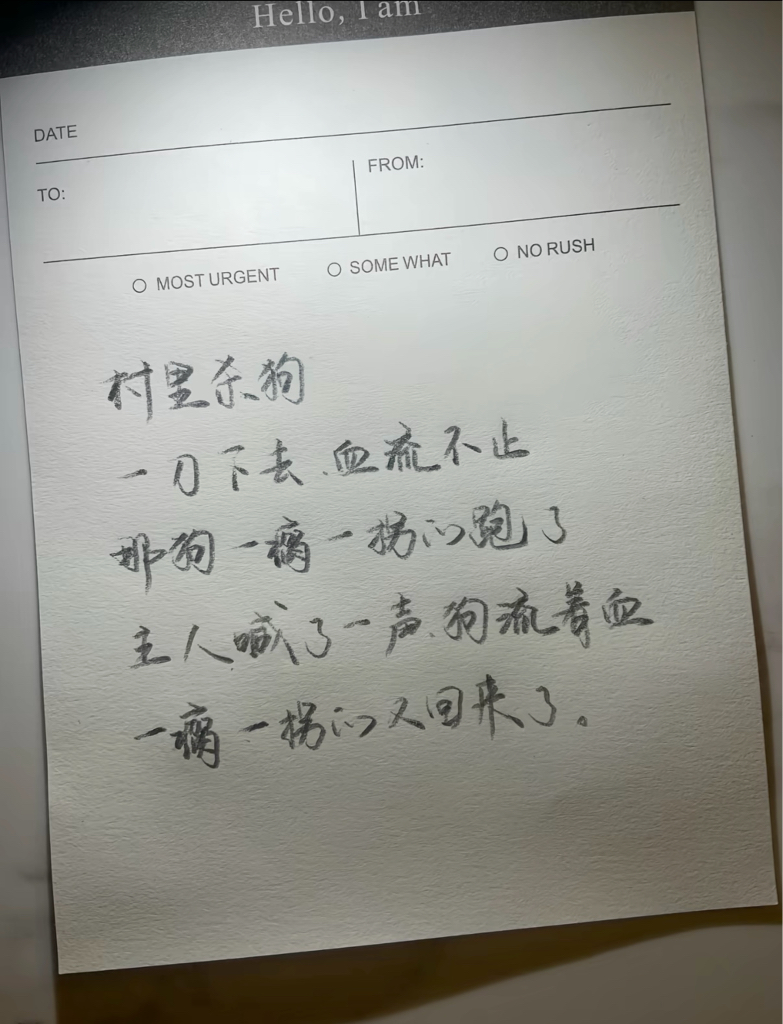 Hello, I am
DATE
TO:
FROM:
MOST URGENT
SOME WHAT
NO RUSH
村里杀狗
一刀下去.血流不止
那狗一瘸一拐的跑了
主人喊了一声.狗流着血
一瘸一拐的又回来了。